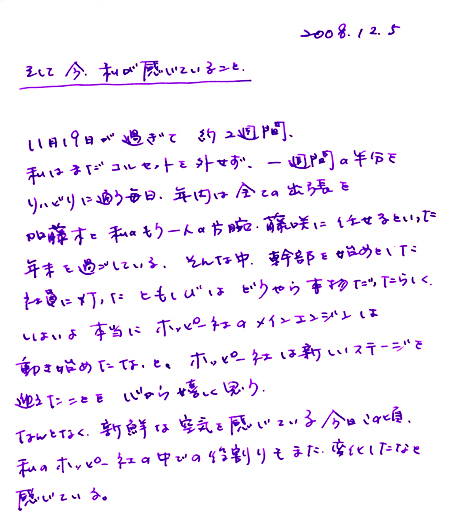 2008.12.5
そして今、私が感じていること。
11月19日が過ぎて 約2週間、
私はまだコルセットを外せず、一週間の半分を
リハビリに通う毎日。年内は全ての出張を
加藤木と私のもう一人の片腕・藤咲に任せるといった
年末を過ごしている。そんな中、幹部を始めとした
社員に灯った ともしびは どうやら本物だったらしく、
いよいよ本当に ホッピー社のメインエンジンは
動き始めたな、と。ホッピー社は新しいステージを
迎えたことを 心から嬉しく思う。
なんとなく、新鮮な空気を感じている今日この頃、
私のホッピー社の中での役割りもまた、変化したなと
感じている。